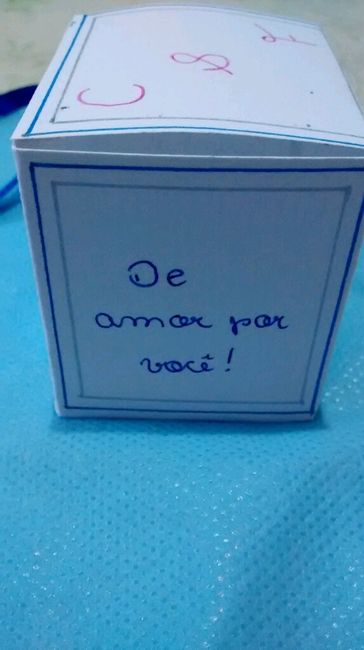 C & F
De
amor por
você!